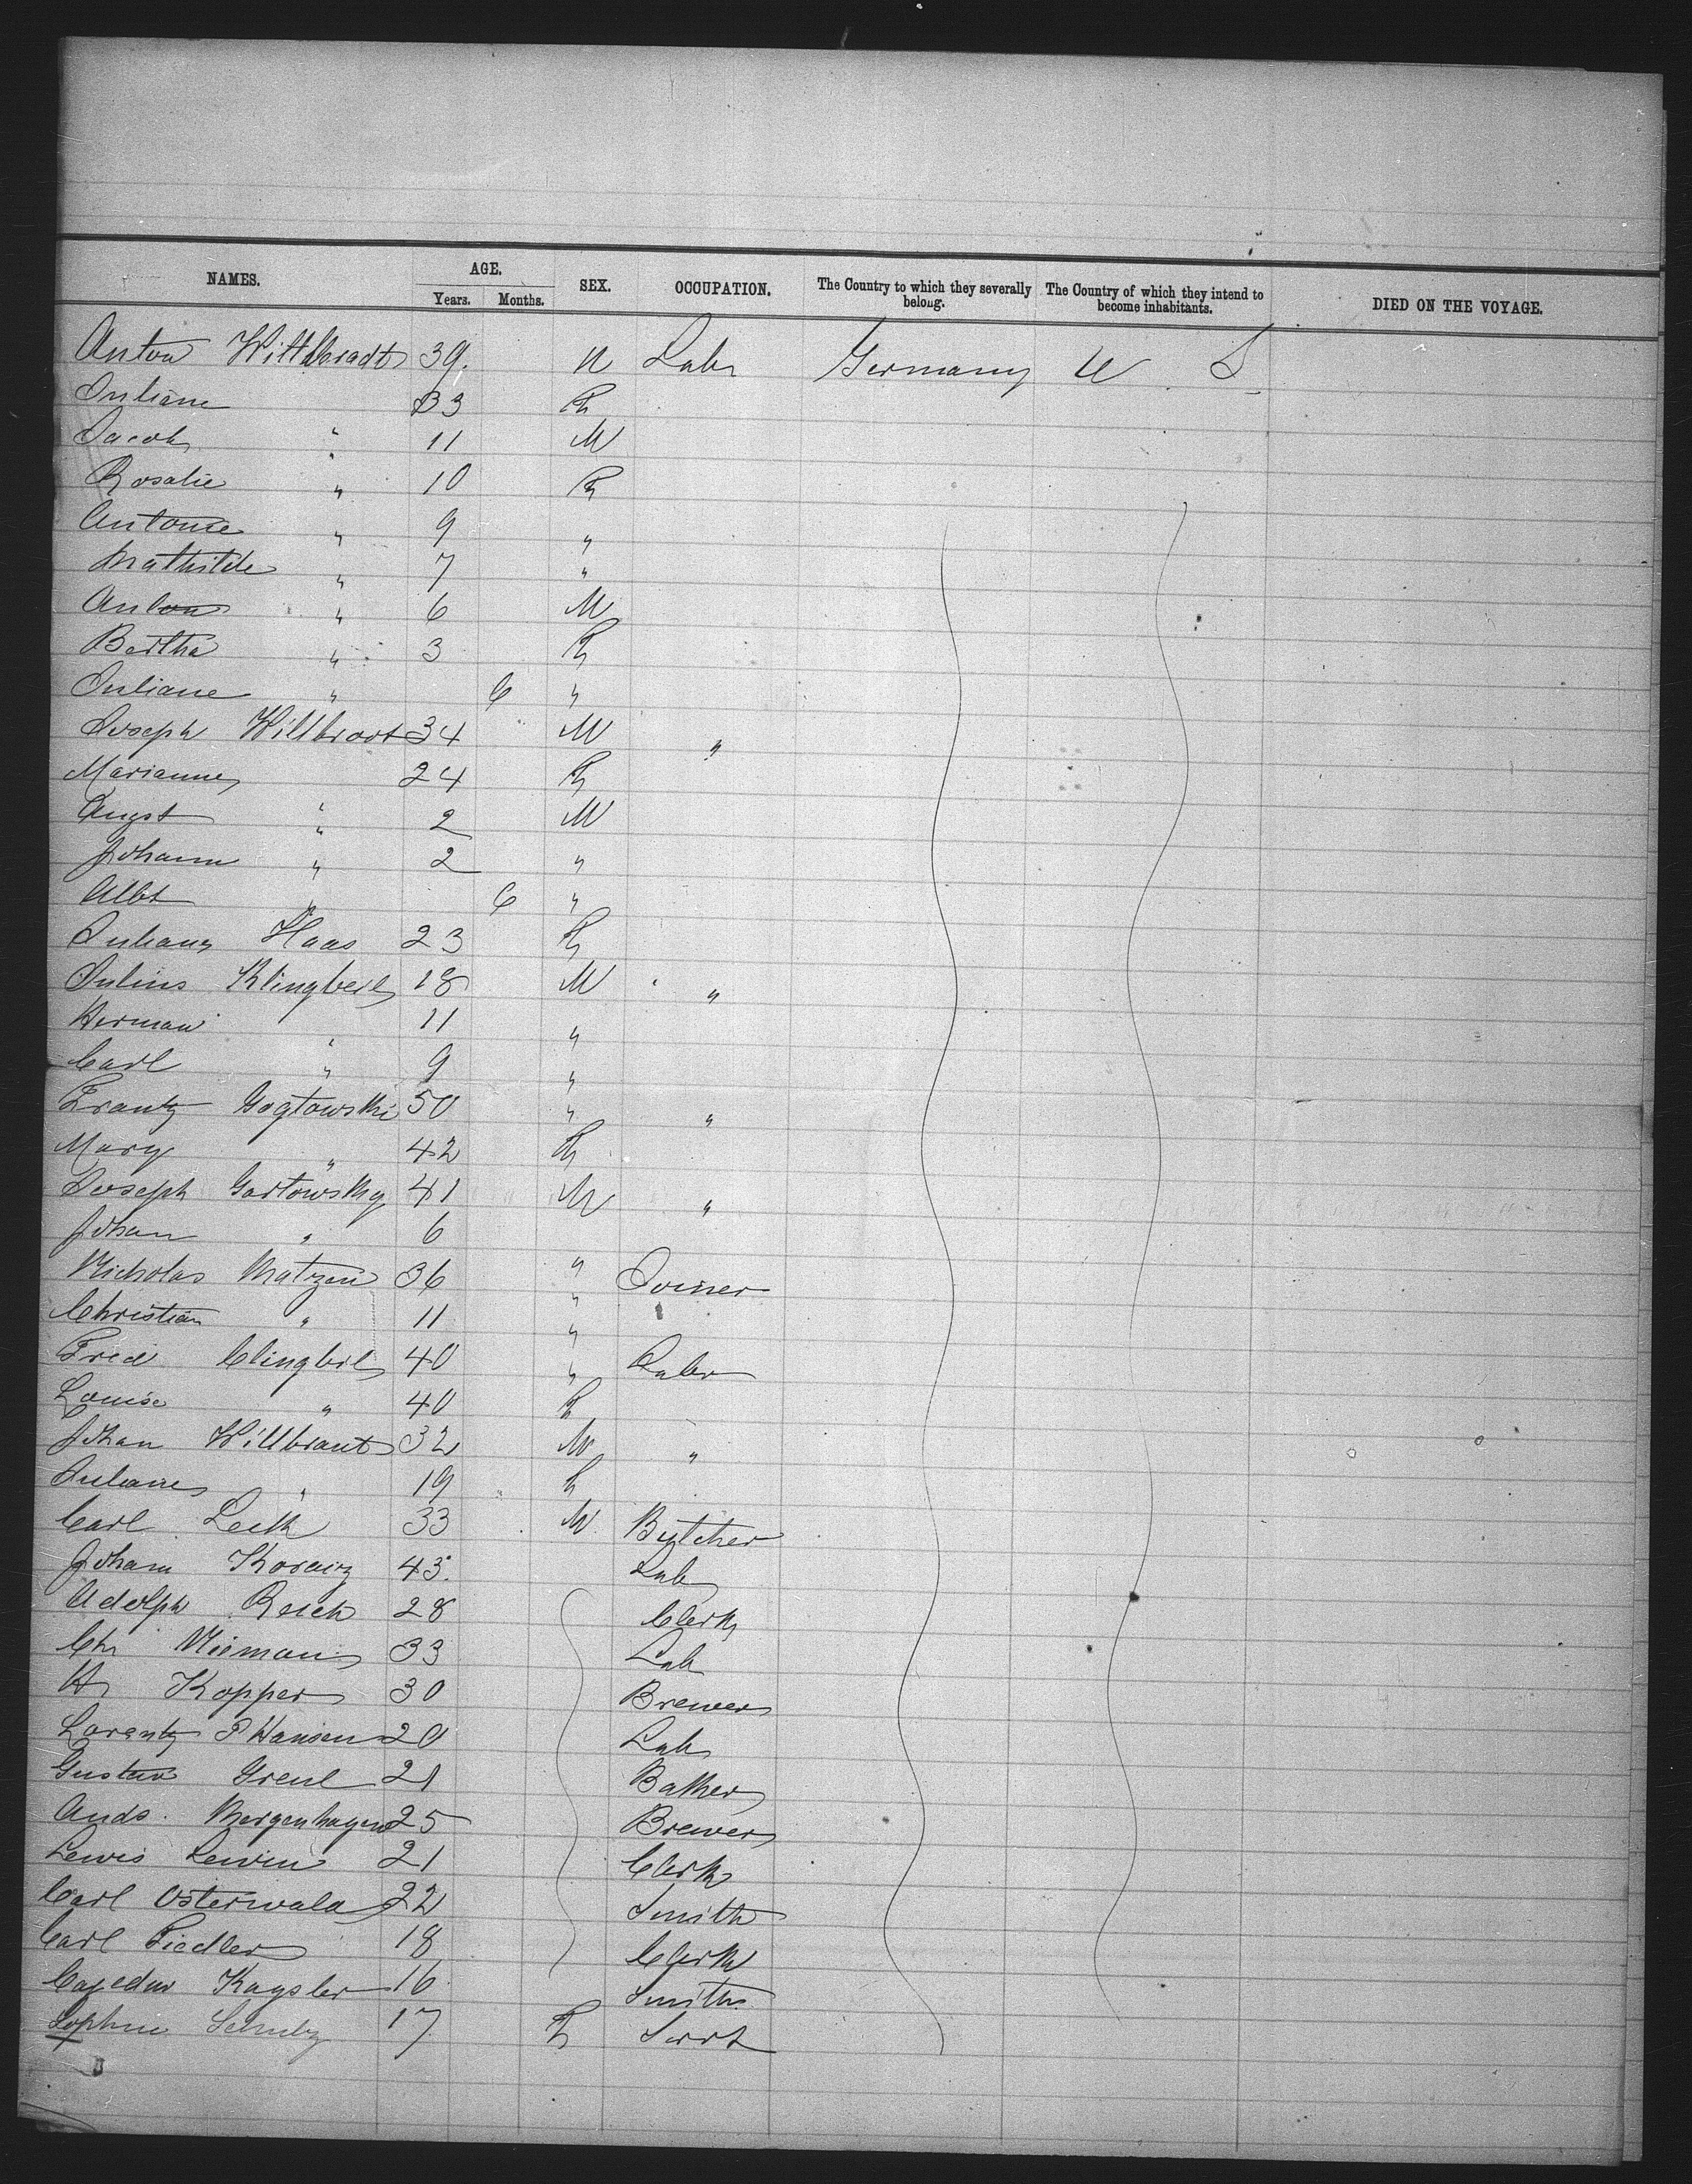 NAMES. AGE. SEX. OCCUPATION. The Country to which they severally belong. The Country of which they intend to become inhabitants. DIED ON THE VOYAGE.
Years. Months.
Anton Wittbradt 39. M Labr Germany U S
Juliane 33 F
Jacob " 11 M
Rosalie " 10 F
Antonie " 9 "
Mathilde " 7 "
Anton " 6 M
Bertha " 3 F
Juliane " 6 "
Joseph Willbrodt 34 M "
Marianne 24 F
Augst " 2 M
Johann " 2 "
Albt " 6 "
Juliane Haas 23 F
Julius Klingbeil 18 M "
Herman " 11 "
Carl " 9 "
Frantz Gogtowski 50 " "
Mary " 42 F
Joseph Gartowsky 41 M "
Johan " 6 "
Nicholas Matzen 36 " Joiner
Christian " 11 "
Fried Clingbeil 40 " Labr
Louise " 40 F
Johan Willbrant 32 M "
Juliane " 19 F
Carl Leik 33 M Butcher
Johann 43. Lab
Adolph Reich 28 Clerk
Chr Nieman 33 Lab
Hr Kopper 30 Brewer
Lorentz P Hansen 20 Lab
Gustav Greul 21 Baker
Ands. Mergenhagen 25 Brewer
Lewis Lewin 21 Clerk
Carl Osterwald 22 Smith
Carl Fiedler 18 Clerk
Kaysler 16 Smith
Sophie Schulz 17 F Servt